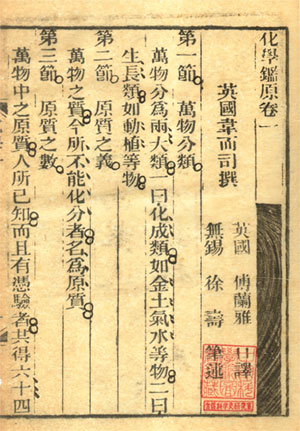 化學鑑原卷一
英國 傅蘭雅 口譯
無錫 徐壽 筆述
英國韋而司撰
第一節 萬物分類
萬物分爲兩大類一曰化成類如金土氣水等物二曰
生長類如動植等物
第二節 原質之義
萬物之質今所不能化分者名爲原質
第三節 原質之數
萬物中之原質人所已知而且有憑驗者共得六十四